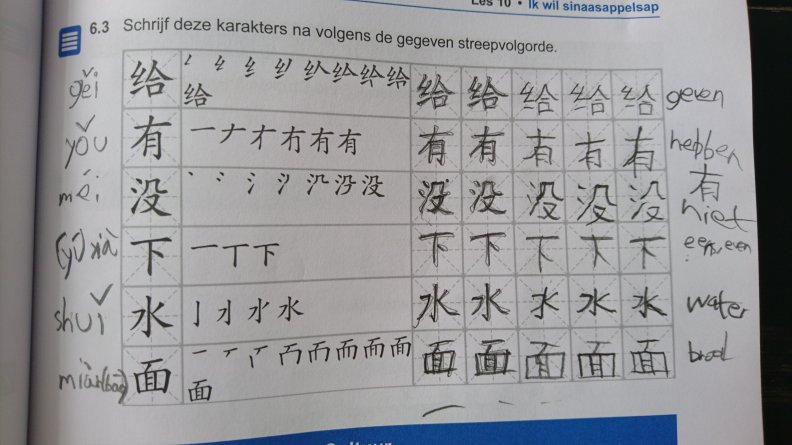 Les 10 • Ik wil sinaasappelsap
6.3 Schrijf deze karakters na volgens de gegeven streepvolgorde.
gěi 给 给 给 给 给 给 给 geven
给
yǒu 有 一 ナ 有 有 有 有 有 有 hebben
méi 没 没 没 没 没 没 没 有 niet
(yí)xià 下 一 丅 下 下 下 下 下 下 even
shuǐ 水 亅 水 水 水 水 水 水 water
miàn(bāo) 面 一 面 面 面 面 面 面 brood
面